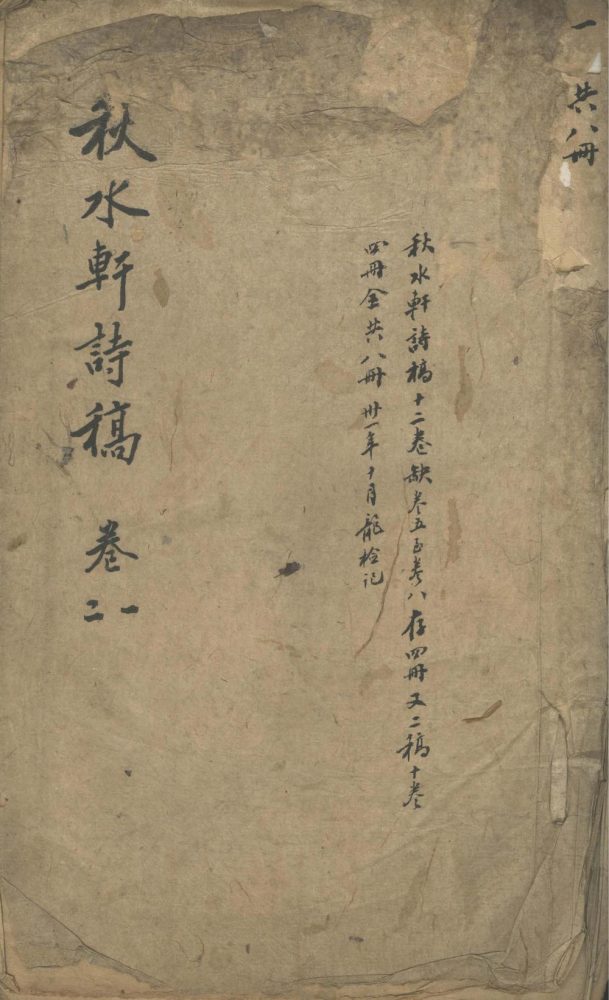 一 共八冊
秋水軒詩稿十二卷缺卷五至卷八存四冊又二稿十卷
四冊全共八冊 卅一年十月龍檢記
秋水軒詩稿 卷
一
二